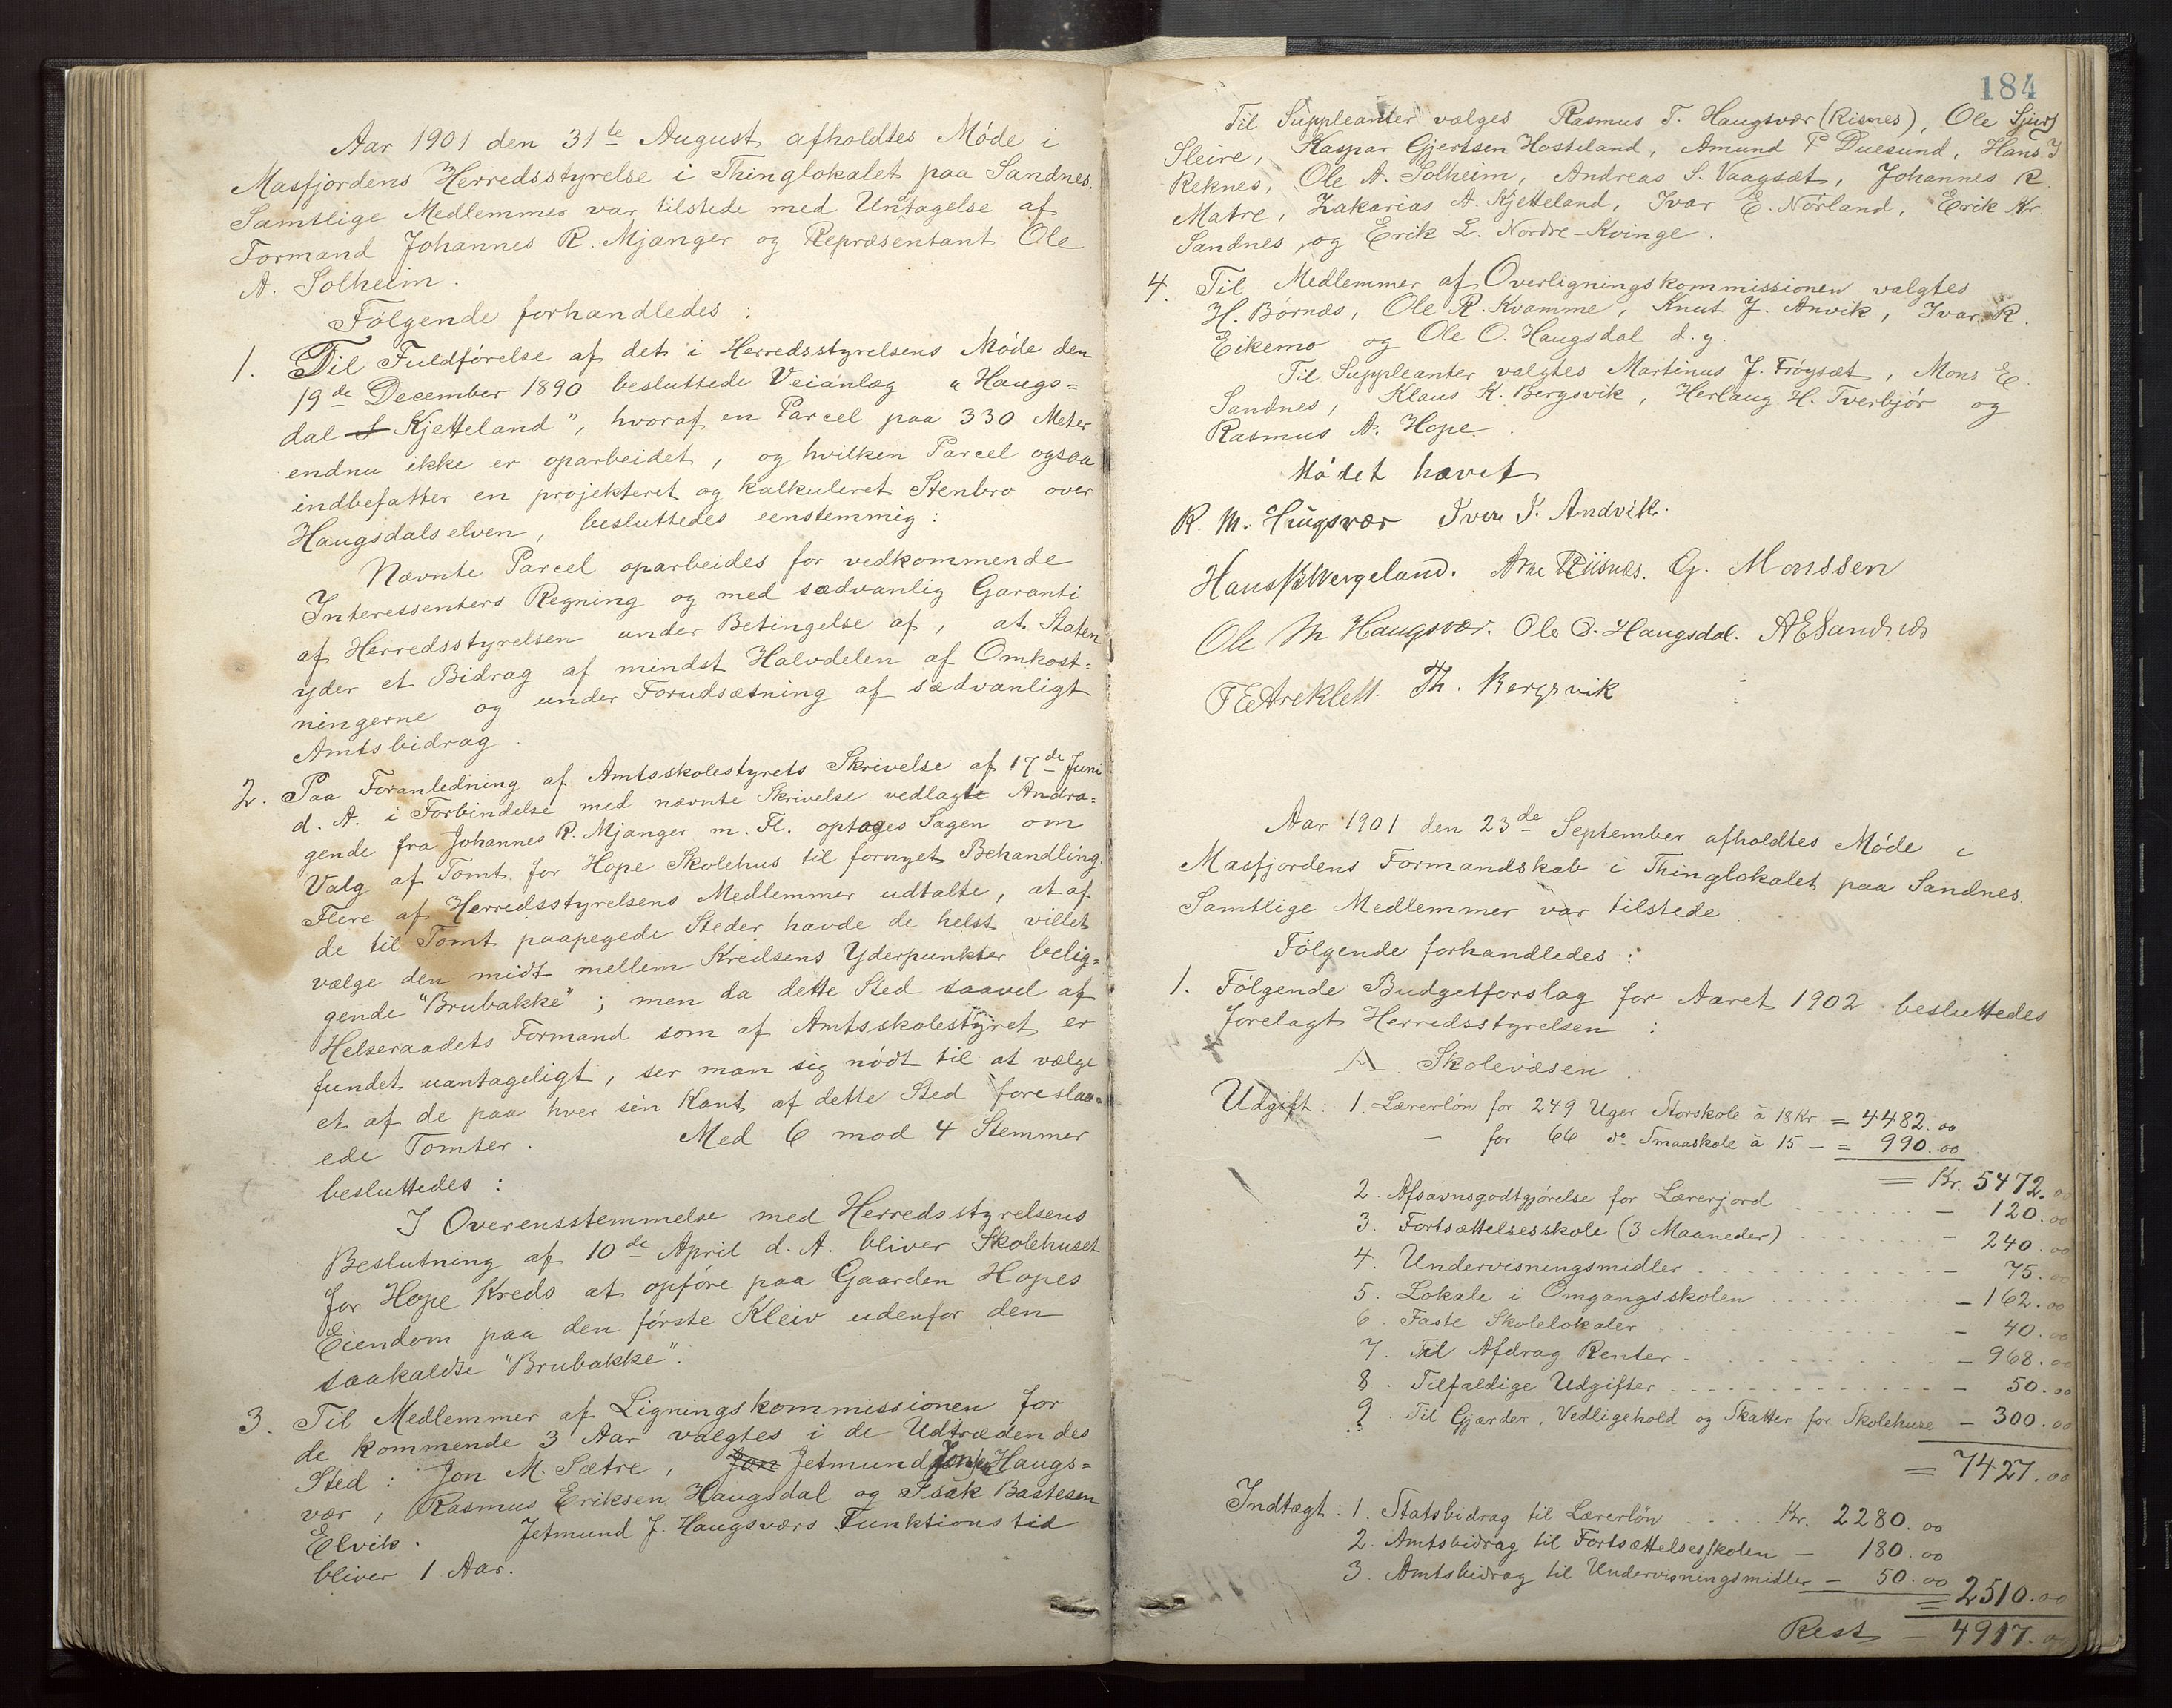 Aar 1901 den 31te August afholdtes Møde i
Masfjordens Herredsstyrelse i Thinglokalet paa Sandnes.
Samtlige Medlemmer var tilstede med Undtagelse af
Formand Johannes R. Mjanger og Repræsentant Ole
A. Solheim.
Følgende forhandledes :
1. Til Fuldførelse af det i Herredsstyrelsens Møde den
19de December 1890 besluttede Veianlæg "Haugs=
dal - Kjetteland", hvoraf en Parcel paa 330 Meter
endnu ikke er oparbeidet, og hvilken Parcel ogsaa
indbefatter en projekteret og kalkuleret Stenbro over
Haugsdalselven, besluttedes eenstemmig :
Nævnte Parcel oparbeides for vedkommende
Interessenters Regning og med sædvanlig Garanti
af Herredsstyrelsen under Betingelse af, at Staten
yder et Bidrag af mindst Halvdelen af Omkost=
ningerne og under Forudsætning af sædvanligt
Amtsbidrag.
2. Paa Foranledning af Amtsskolestyrets Skrivelse af 17de Juni
d. A. i Forbindelse med nævnte Skrivelse vedlagte Andra=
gende fra Johannes R. Mjanger m. Fl. optages Sagen om
Valg af Tomt for Hope Skolehus til fornyet Behandling.
Flere af Herredsstyrelsens Medlemmer udtalte, at af
de til Tomt paapegede Steder havde de helst villet
vælge den midt mellem Kredsens Yderpunkter belig=
gende "Brubakke" ; men da dette Sted saavel af
Helseraadets Formand som af Amtsskolestyret er
fundet uantageligt, ser man sig nødt til at vælge
et af de paa hver sin Kant af dette Sted foreslaa=
ede Tomter. Med 6 mod 4 Stemmer
besluttedes :
I Overensstemmelse med Herredsstyrelsens
Beslutning af 10de April d. A. bliver Skolehuset
for Hope Kreds at opføre paa Gaarden Hopes
Eiendom paa den første Kleiv udenfor den
saakaldte "Brubakke".
3. Til Medlemmer af Ligningskommissionen for
de kommende 3 Aar valgtes i de Udtrædendes
Sted : Jon M. Sætre, Jon Jetmund Jonsen Haugs=
vær, Rasmus Eriksen Haugsdal og Isak Bastesen
Elvik. Jetmund J. Haugsværs Funktionstid
bliver 1 Aar.
184
Til Suppleanter vælges Rasmus T. Haugsvær (Risnes), Ole Sjurs
Sleire, Kaspar Gjertsen Hosteland, Amund P Duesund, Hans J.
Reknes, Ole A. Solheim, Andreas S. Vaagsæt, Johannes R
Matre, Zakarias A. Kjetteland, Ivar E. Nørland, Erik Kr.
Sandnes og Erik L. Nordre-Kvinge.
4. Til Medlemmer af Overligningskommissionen valgtes
H. Børnæs, Ole R. Kvamme, Knut J. Anvik, Ivar R.
Eikemo og Ole O. Haugsdal d. y.
Til Suppleanter valgtes Martinus J. Frøysæt, Mons E.
Sandnes, Klaus K. Bergsvik, Herlaug H. Tverbjør og
Rasmus A. Hope.
Mødet hævet
R. M. Hugsvær Iver J. Andvik.
Hans Wergeland. Arne Riisnæs. G. Monssen
Ole M Haugsvær. Ole O. Haugsdal. A E Sandnæs
T E Areklett. Th. Bergsvik
Aar 1901 den 23de September afholdtes Møde i
Masfjordens Formandskab i Thinglokalet paa Sandnes.
Samtlige Medlemmer var tilstede.
Følgende forhandledes :
1. Følgende Budgetforslag for Aaret 1902 besluttedes
forelagt Herredsstyrelsen :
A. Skolevæsen.
Udgift : 1. Lærerløn for 249 Uger Storskole à 18 Kr. = 4482.00
— for 66 do Smaaskole à 15 — = 990.00
= Kr. 5472.00
2. Afsavnsgodtgjørelse for Lærerjord — 120.00
3. Fortsættelsesskole (3 Maaneder) — 240.00
4. Undervisningsmidler — 75.00
5. Lokale i Omgangsskolen — 162.00
6. Faste Skolelokaler — 40.00
7. Til Afdrag Renter — 968.00
8. Tilfældige Udgifter — 50.00
9. Til Gjærder, Vedligehold og Skatter for Skolehuse — 300.00
= 7427.00
Indtægt : 1. Statsbidrag til Lærerløn Kr. 2280.00
2. Amtsbidrag til Fortsættelsesskolen — 180.00
3. Amtsbidrag til Undervisningsmidler — 50.00
= 2510.00
Rest — 4917.00